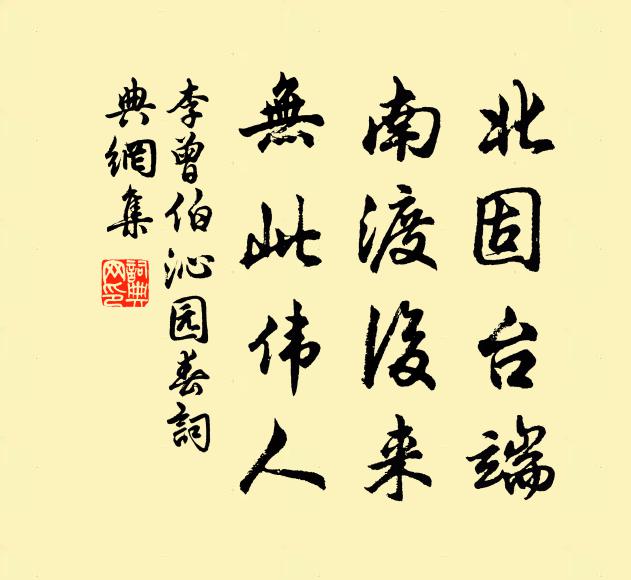 北固台端
南渡後来
無此伟人
李曾伯沁园春詞
典網集
詞典网印